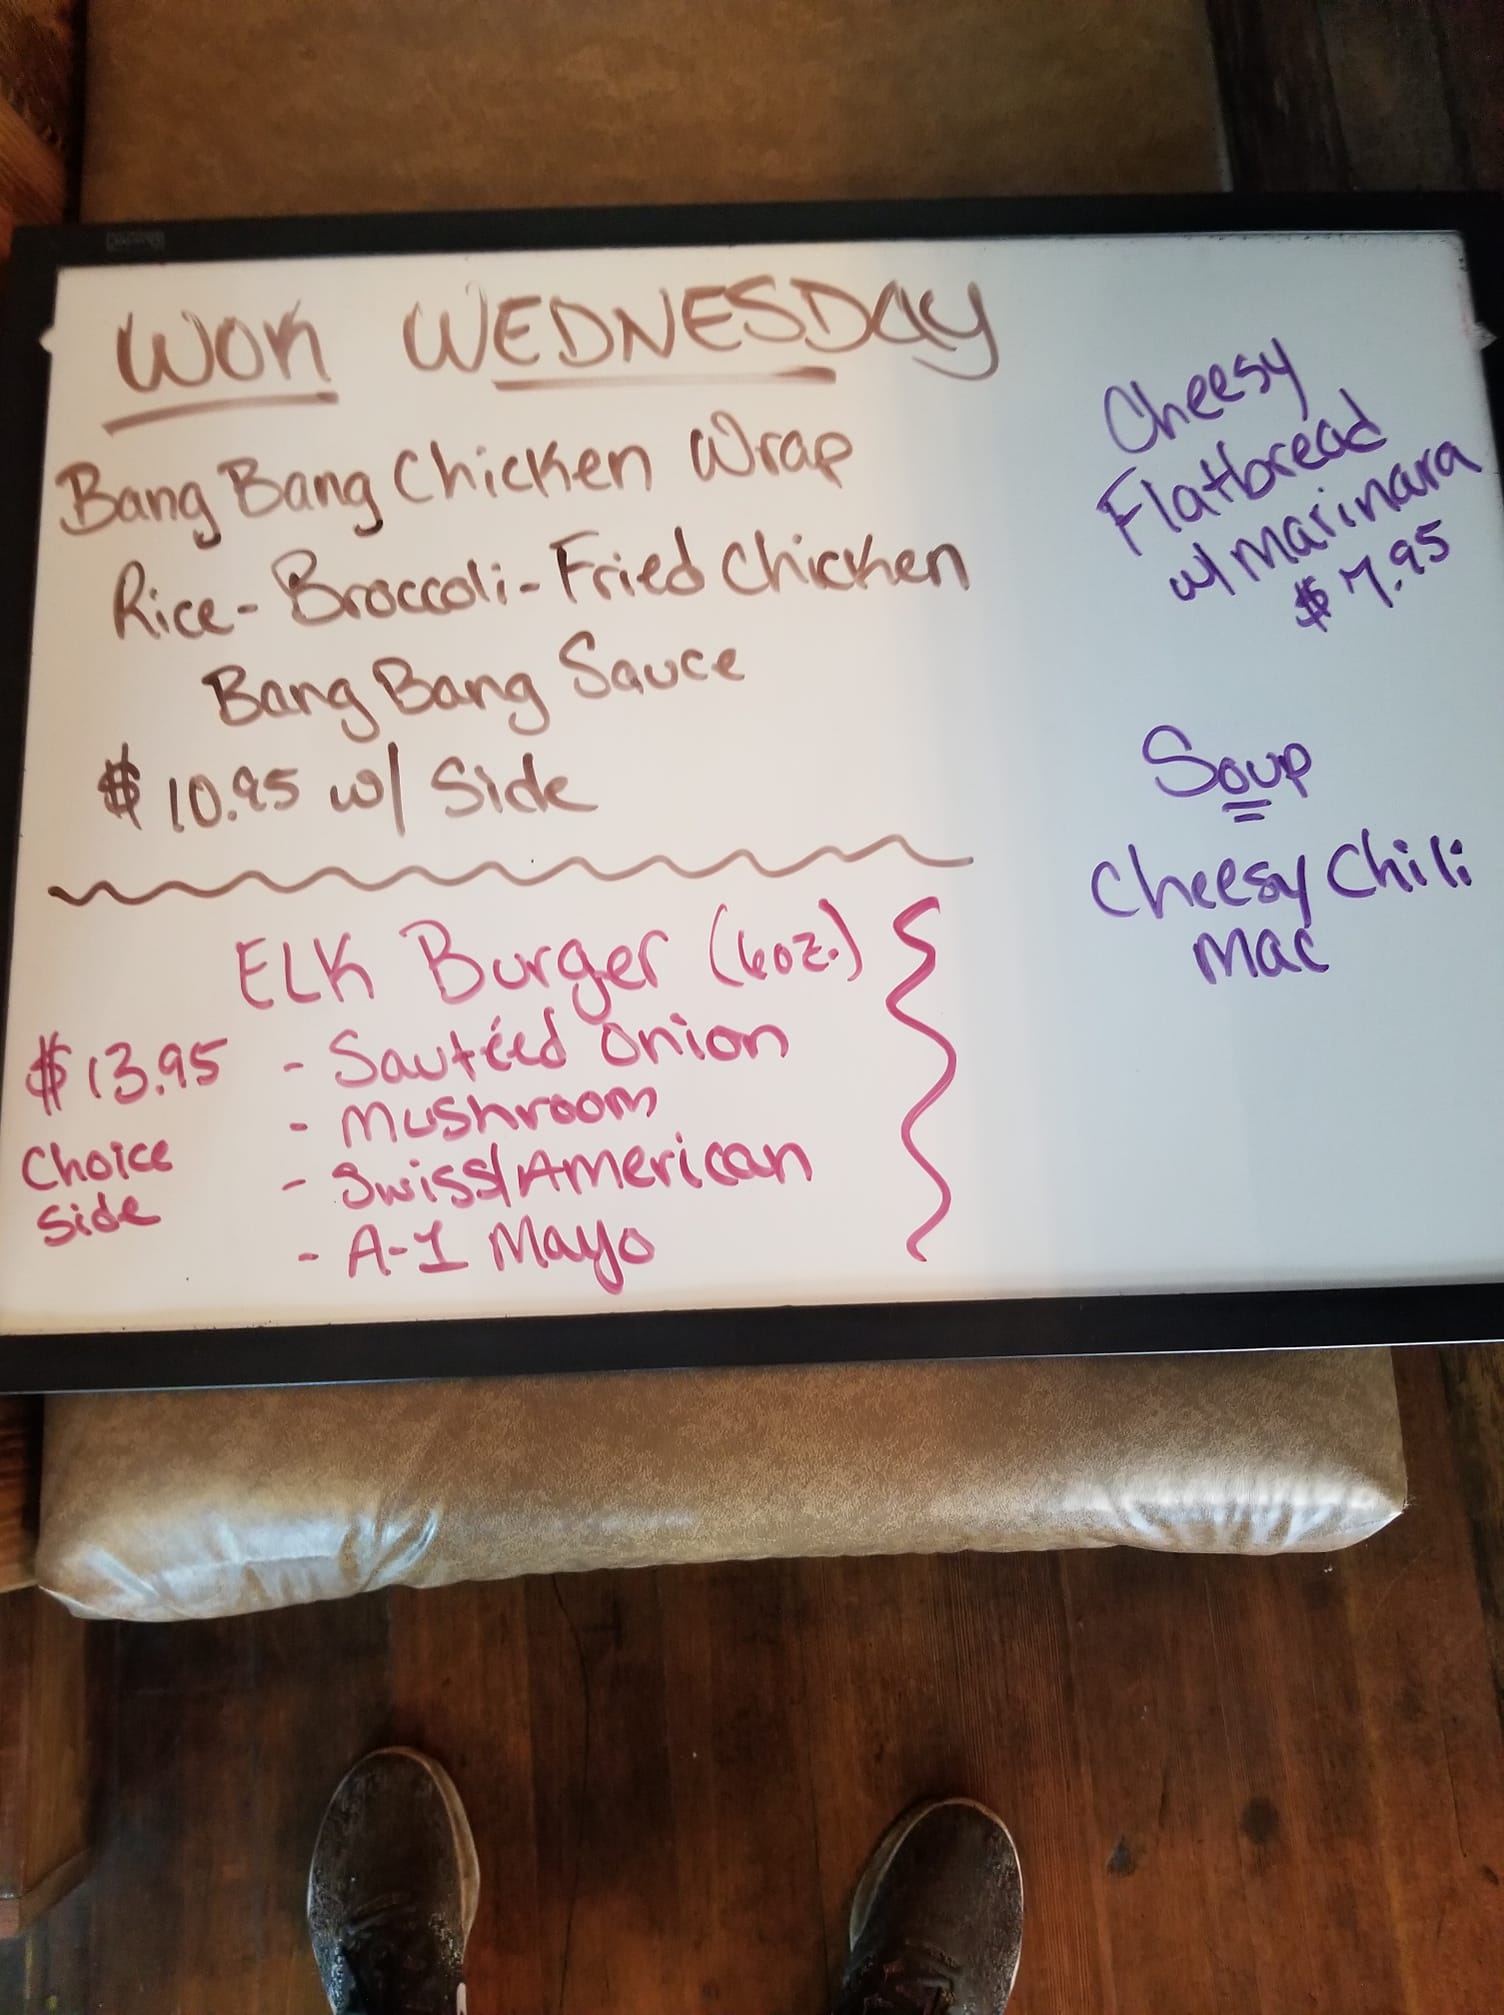 WOK WEDNESDAY
Bang Bang Chicken Wrap
Rice - Broccoli - Fried Chicken
Bang Bang Sauce
$10.95 w/ Side
ELK Burger (6oz.)
$13.95
Choice
Side
- Sautéed Onion
- Mushroom
- Swiss/American
- A-1 Mayo
Cheesy
Flatbread
w/ Marinara
$7.95
Soup
Cheesy Chili
Mac